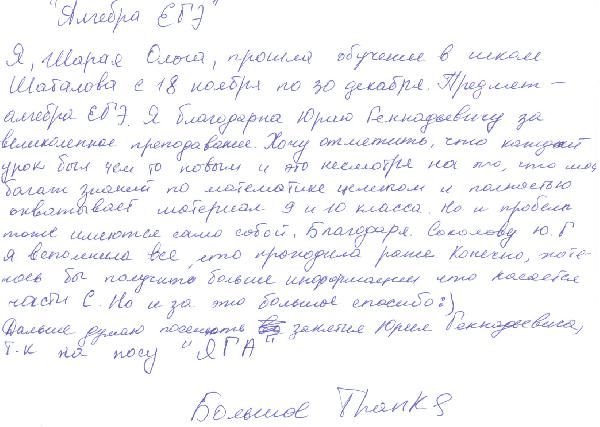 "Алгебра ЕГЭ"
Я, Шарая Ольга, прошла обучение в школе
Шаталова с 18 ноября по 30 декабря. Предмет –
алгебра ЕГЭ. Я благодарна Юрию Геннадьевичу за
великолепное преподавание. Хочу отметить, что каждый
урок был чем то новым и это несмотря на то, что мой
багаж знаний по математике целиком и полностью
охватывает материал 9 и 10 класса. Но и пробелы
тоже имеются само собой. Благодаря Соколову Ю.Г
я вспомнила все, что проходила ранее. Конечно, хоте-
лось бы получить больше информации что касается
части С. Но и за это большое спасибо:)
Дальше думаю посещать занятия Юрия Геннадьевича,
т.к на носу "ЯГА"
Большое Thank Я